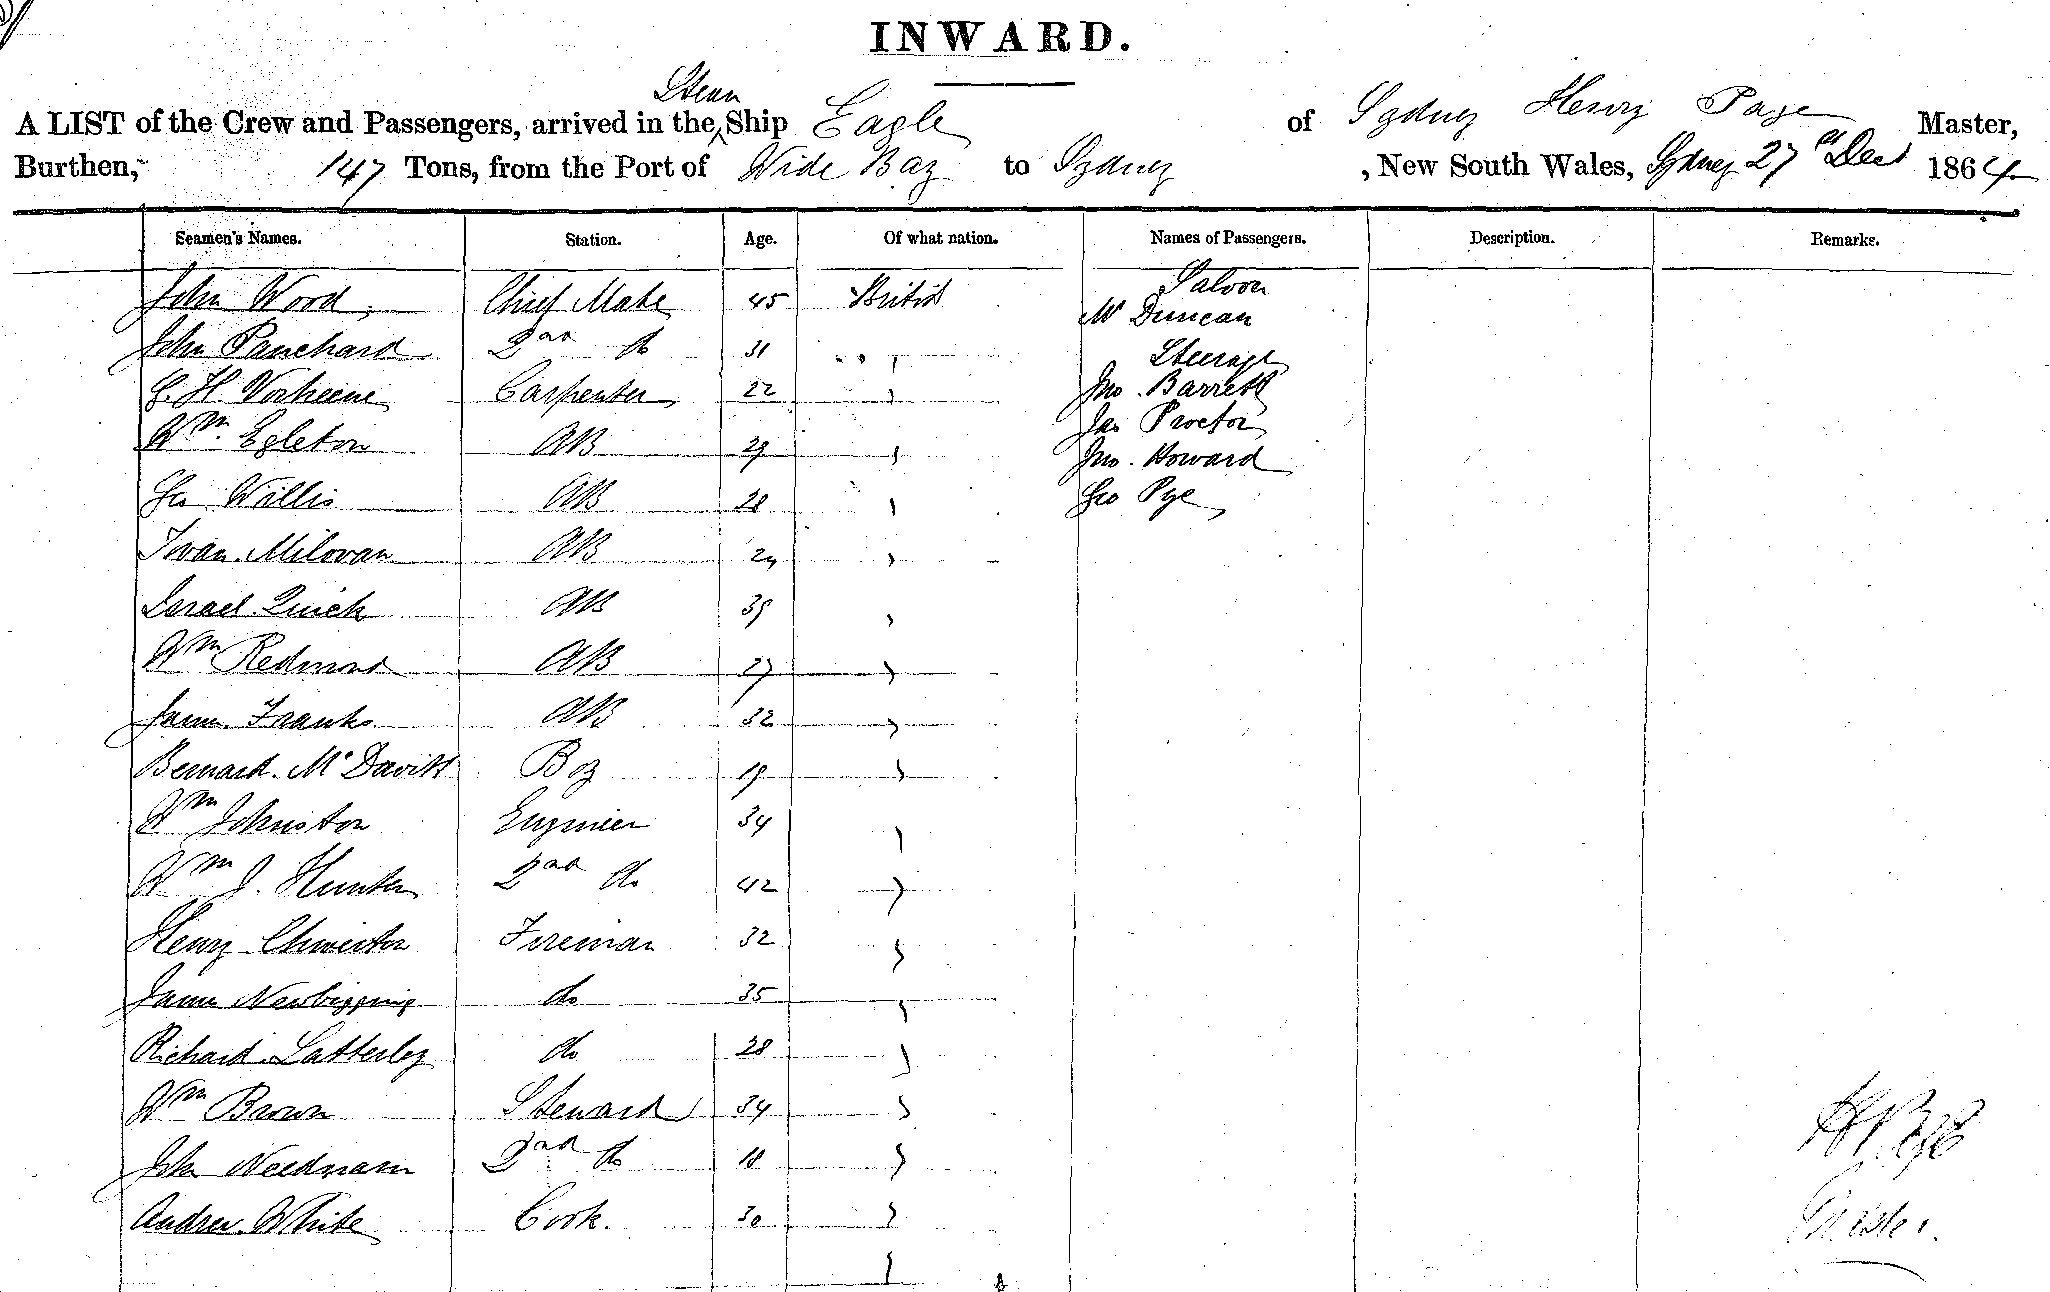 INWARD.
Steam
A LIST of the Crew and Passengers, arrived in the ^ Ship Eagle of Sydney Henry Page Master,
Burthen, 147 Tons, from the Port of Wide Bay to Sydney, New South Wales, Sydney 27th Decr 1864
Seamen's Names. Station. Age. Of what nation. Names of Passengers. Description. Remarks.
John Wood Chief Mate 45 British Saloon
Mr Duncan
John Panchard 2nd do 31 " Steerage
G. H. Vorheene Carpenter 22 " Jno. Barrett
Jas Proctor
Wm. Egleton AB 29 " Jno. Howard
Geo Willis AB 28 " Geo Pye
Ivan Milovan AB 24 "
Israel Quick AB 39 "
Wm Redmond AB 27 "
James Franks AB 32 "
Bernard McDavitt Boy 19 "
Wm Johnston Engineer 34 "
Wm J. Hunter 2nd do 42 "
Henry Chiverton Fireman 32 "
James Newbigging do 35 "
Richard Latterley do 28 "
Wm Brown Steward 34 "
John Needham 2nd do 18 "
Andrew White Cook. 30 "
H Page
Master.